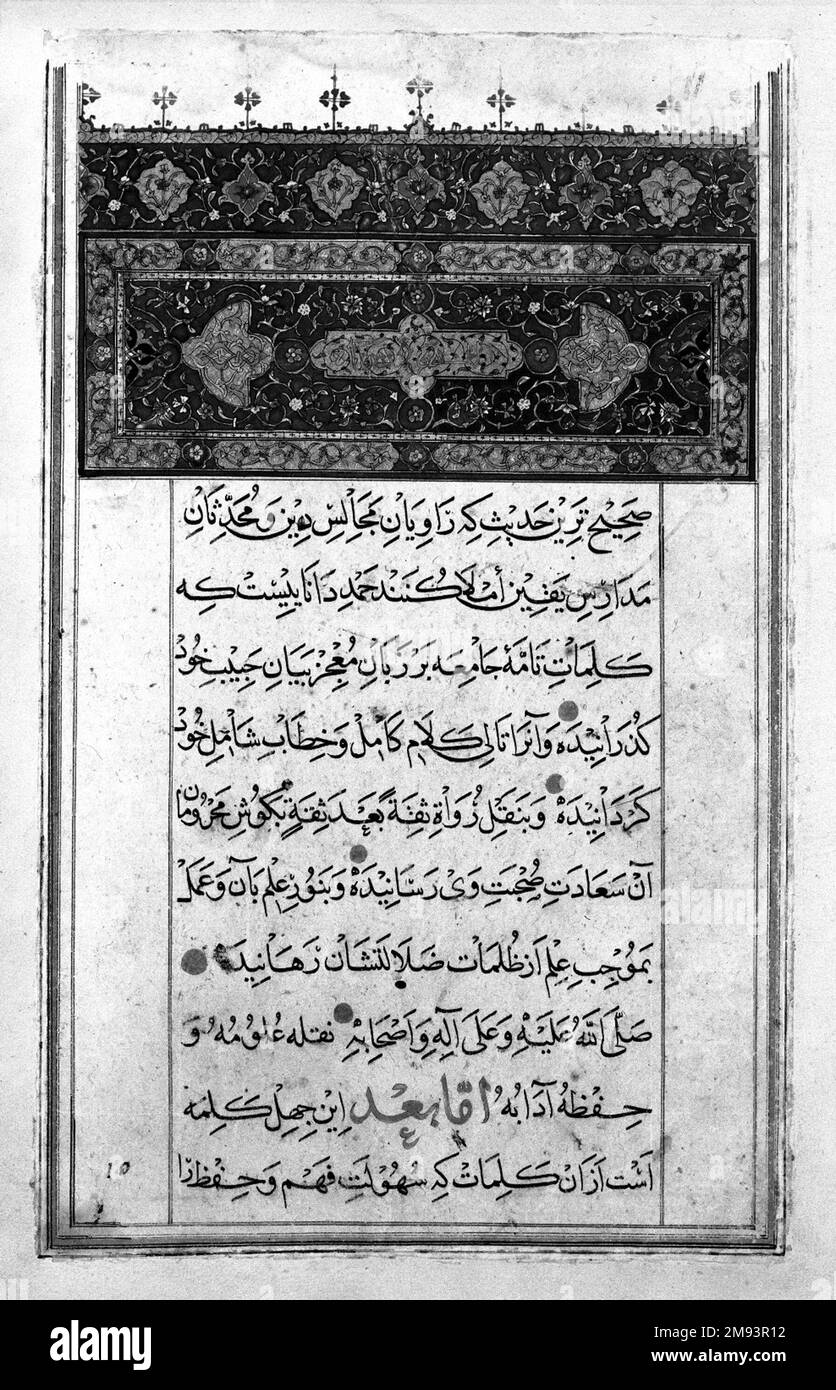 صَحِیح تَرین حَدیث که رَاوِیانِ مَجَالِسِ دِین وَ مُحَدِّثَانِ
مَدَارِسِ یَقین أملا کُنند حَمدِ دَانَاییست که
کَلِمَاتِ تَامّهٔ جَامِعَه بر زبانِ مُعجز بَیانِ حَبیبِ خُود
گذرانیده وَ آنرا تالی کَلامِ کامِل وَ خِطابِ شامِلِ خُود
گردانیده وَ بنقلِ رُوَاةِ ثِقَةً بَعدَ ثِقَةٍ بگوشِ مَحرومان
آن سَعادَتِ صُحبَتِ وَی رَسانیده وَ بنورِ عِلم بآن وَ عَمَل
بمُوجِبِ عِلم از ظُلماتِ ضَلالتشان رَهانید
صَلَّی اللّٰهُ عَلَیهِ وَ عَلی آلِهِ وَ اَصحَابِهِ نقله عُلُومُهُ وَ
حِفظهُ آدَابُهُ امّا بعد این چهل کلمه
است از آن کَلِمات که سُهُولَتِ فَهم وَ حِفظ را
10
alamy
alamy
Image ID: 2M93R12
www.alamy.com